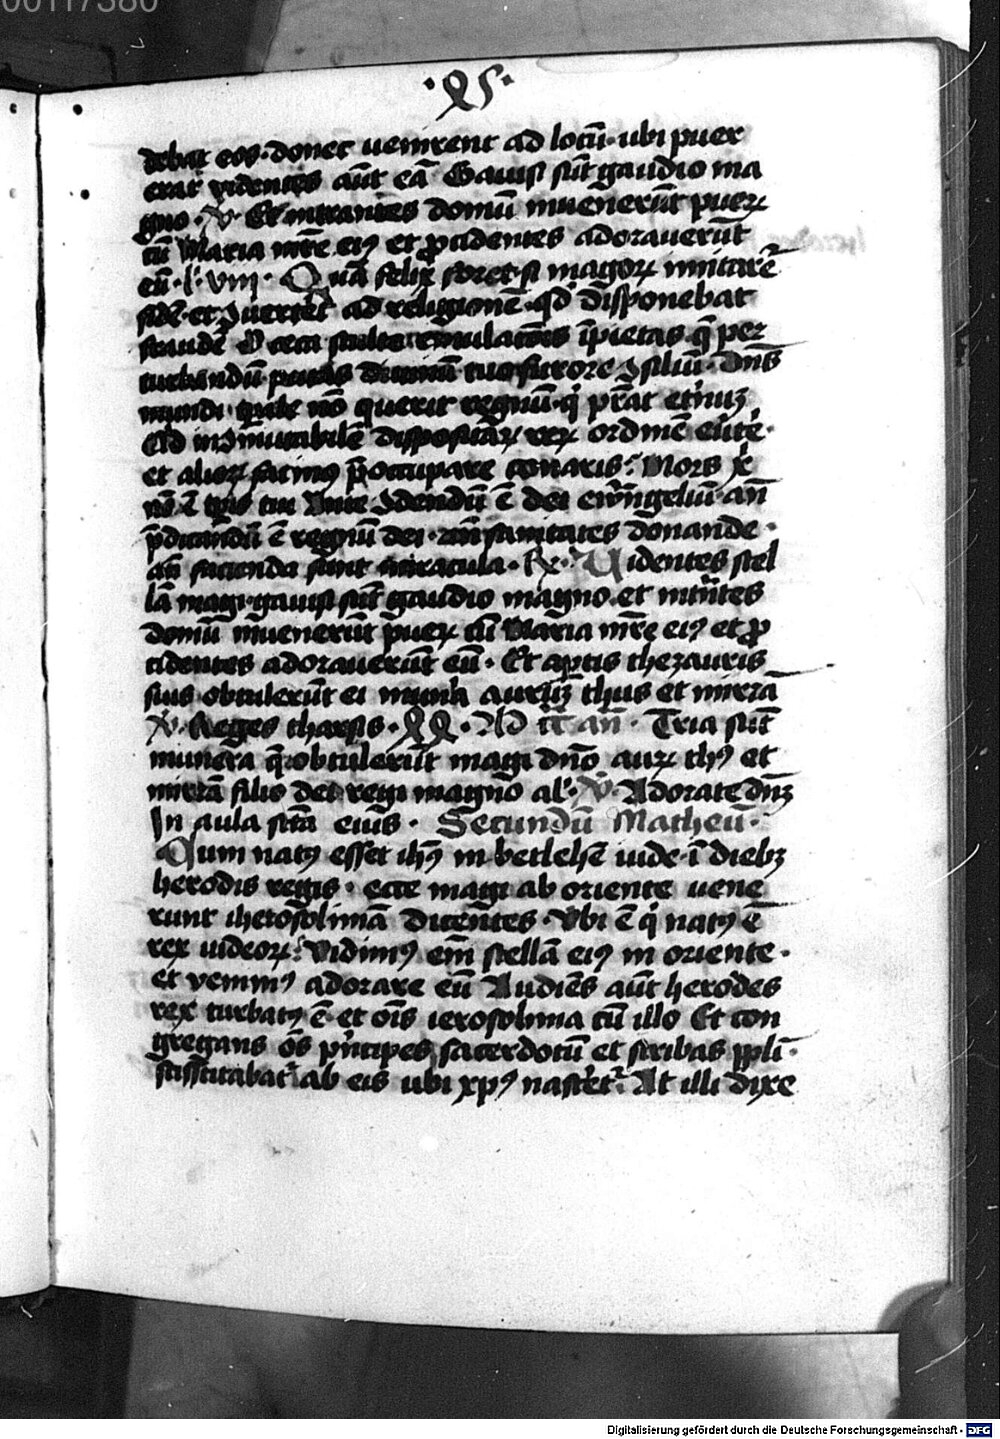 00117380
debat eos · donec venirent ad locū · ubi puer
erat videntes aūt eā Gauisi sūt gaudio ma
gno · V · Et intrantes domū inuenerūt pueꝝ
cū Maria mr̄e eiꝰ et ꝓcidentes adorauerūt
eū · l · viij · Quā felix foret si magoꝝ imitarē
fidē · et ꝯuerteret ad religionē · qd̓ disponebat
fraudē O ceca stulte emulacōis īpietas · q̄ per
turbandū putas diuinū tuo furore ꝯsiliū · Dn̄s
mundi · tp̄ale nō querit regnū · qͥ p̄stat et̓nuꝫ
et alieꝝ facinꝰ p̄occupare conaris · Mors x
nō ē tp̄is tui Ante ꝯdendū ē dei ewāngeliū · an̄
p̄dicandū ē regnū dei · sanitates donande ·
an̄ facienda sunt miracula · Rx · Uidentes stel
lā magi · gauisi sūt gaudio magno · et int̄ntes
domū inuenerūt pueꝝ cū Maria mr̄e eiꝰ et ꝓ
cidentes adorauerūt eū · Et aꝑtis thezauris
suis obtulerūt ei mun̄a auruꝫ thus et mirrā
V · Reges tharsis · Ad an̄ · Tria sūt
munera q̄ obtulerūt magi dn̄o auꝝ thꝰ et
mirrā filio dei regi magno al̓ · V · Adorate dn̄ꝫ
In aula sctā eius · Secundū Matheū ·
Qum natꝰ esset ih̄s in betlehē iude · ī diebꝫ
herodis regis · ecce magi ab oriente vene
runt iherosolimā dicentes · Vbi ē qͥ natꝰ ē
rex iudeoꝝ · Vidimꝰ em̄ stellā eiꝰ in oriente ·
et venimꝰ adorare eū Audiēs aūt herodes
rex turbatꝰ ē · et oīs ierosolima cū illo Et con
gregans ōs pn̄cipes sacerdotū et scribas ppl̄i ·
scisscitabat̓ ab eis ubi xpꝰ nascēt̓ · At illi dixe
Digitalisierung gefördert durch die Deutsche Forschungsgemeinschaft - DFG